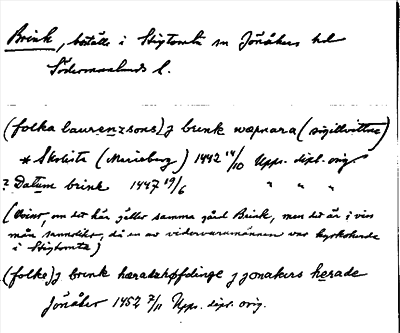 Brink, beställe i Stigtomta sn Jönåkers hd
Södermanlands l.
(folka laurenzsons) j brink wæpnara (sigillvittne)
* Skolista (Marieborg) 1442 14/10 Upps. dipl. orig
? Datum brink 1447 19/6 " " "
(Ovisst, om det här gäller samma gård Brink, men det är i viss
mån sannolikt, då en av vidervarumännen var kyrkoherde
i Stigtomta)
(folke) j brink hæradzhøfdinge j jonakers herade
Jönåker 1452 7/11 Upps. dipl. orig.